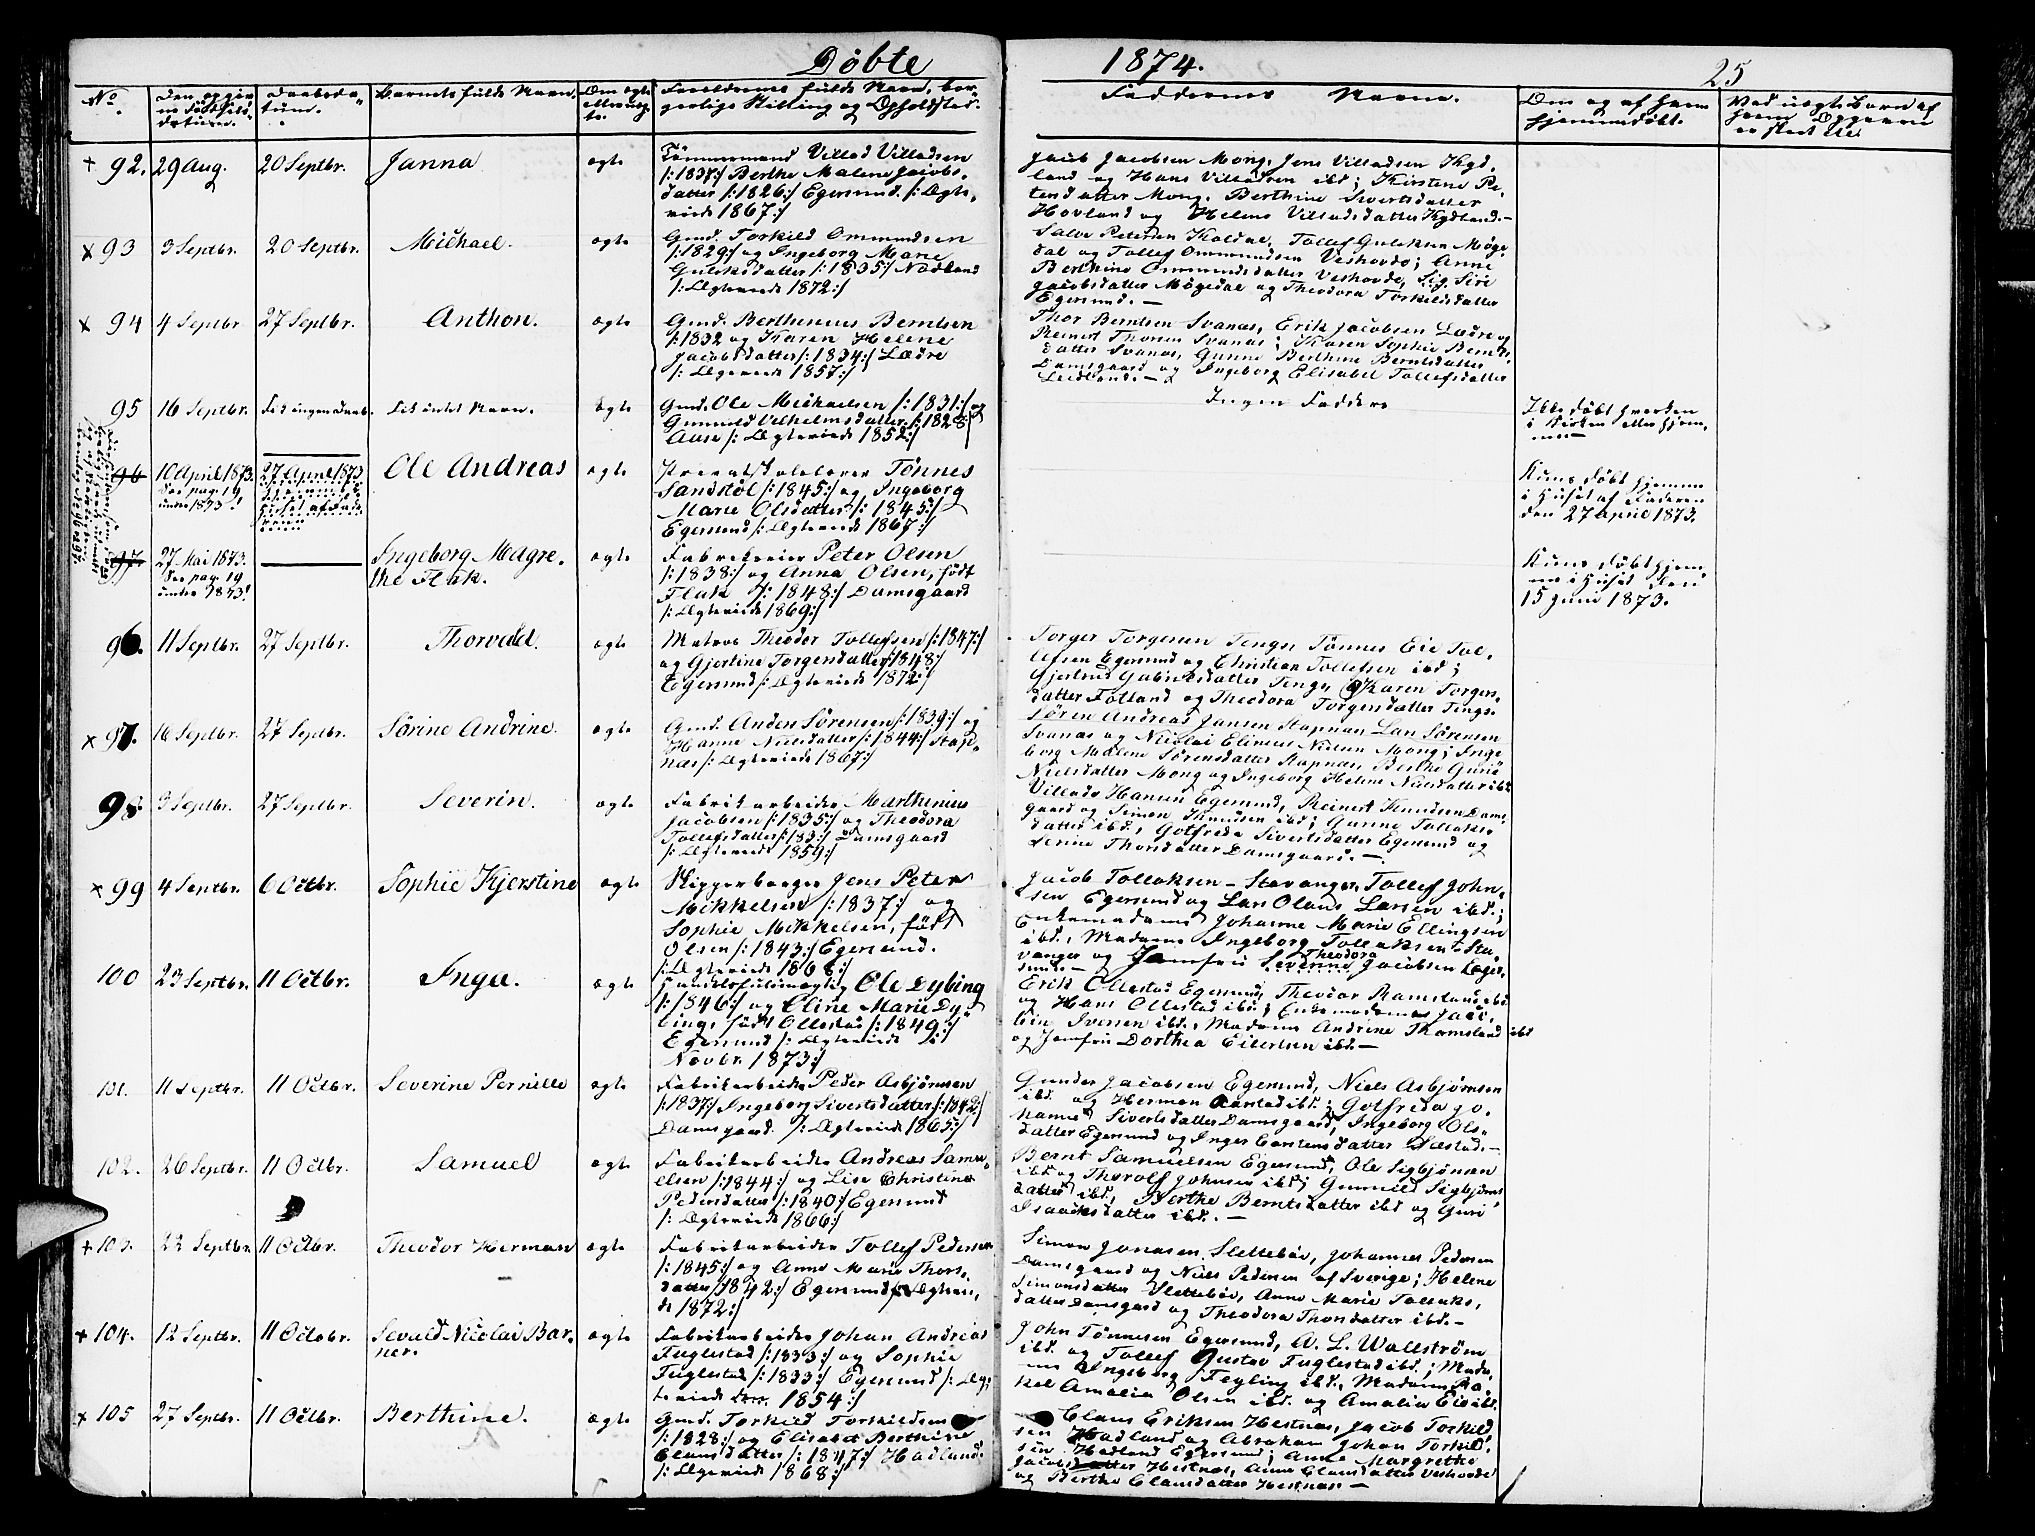 Døbte
1874.
25
No.
Barnets fulde Navn.
Faddernes Navne.
+ 92. 29 Aug. 20 Septbr. Janna ægte
Tømmermand Villad Villadsen
/:1837:/ Berthe Malene Jacobs-
datter /:1826:/ Egersund. /: Ægte-
viede 1867:/
Jacob Jacobsen Mong, Jens Villadsen Kyd-
land og Hans Villadsen ibd; Kirstene Pe-
tersdatter Mong, Berthine Sivertsdatter
Hovland og Helene Villadsdatter Kydland.-
x 93 3 Septbr. 20 Septbr. Michael. ægte
Gmd. Torkild Ommundsen
/:1829:/ og Ingeborg Marie
Guleksdatter /:1835:/ Nodland
/: Ægteviede 1872:/
Salve Petersen Koldal, Tollef Guleksen Møge-
dal og Tollef Ommundsen Veshovde; Anne
Berthine Ommundsdatter Veshovde, Sig. Siri
Jacobsdatter Møgedal og Theodora Torkildsdatter
Egersund.-
x 94 4 Septbr 27 Septbr. Anthon. ægte
Gmd. Berthinius Berntsen
/:1832 og Karen Helene
Jacobsdatter /:1834:/ Lædre
/: Ægteviede 1857:/
Thor Berntsen Svanæs, Erik Jacobsen Lædre og
Reinert Thorsen Svanæs; Karen Sophie Bernts-
datter Svanæs, Gunne Berthine Berntsdatter
Damsgaard og Ingeborg Elisabet Tollefsdatter
Leidland.-
95 16 Septbr. Fik ingen Daab. Fik intet Navn. Ægte
Gmd. Ole Michaelsen /:1831:/ og
Gunnild Vilhelmsdatter /:1828:/
Aase /: Ægteviede 1852:/
Ingen Faddere
Ikke døbt hverken
i Kirken eller hjem-
me
96 10 April 1873. 27 April 1873 Ole Andreas ægte
See pag. 19
under 1873!
Privatskolelærer Tønnes
Sandstøl /:1845:/ og Ingeborg
Marie Olsdatter /:1845:/
Egersund /: Ægteviede 1867:/
Kuns døbt hjemme
i Huset af Faderen
den 27 April 1873.
97 27 Mai 1873. Ingeborg Magre-
the Flak. ægte
See pag. 19
under 1873!
Fabrikeier Peter Olsen
/:1838:/ og Anna Olsen, født
Flak /:1848:/ Damsgaard
/: Ægteviede 1869:/
Kuns døbt hjem-
me i Huset den
15 Juni 1873.
96. 11 Septbr. 27 Septbr. Thorvald. ægte
Matros Theodor Tollefsen /:1847:/
og Gjertine Torgersdatter /:1848:/
Egersund /: Ægteviede 1872:/
Torger Torgersen Tengs, Tønnes Eie Tol-
lefsen Egersund og Christian Tollefsen ibd;
Gjertrud Gabrielsdatter Tengs, Karen Torgers-
datter Folland og Theodora Torgersdatter Tengs.
x 97. 16 Septbr. 27 Septbr. Sørine Andrine. ægte
Gmd. Anden Sørensen /:1839:/ og
Hanne Nielsdatter /:1844:/ Stap-
næs /: Ægteviede 1867:/
Søren Andreas Jansen Stapnæs, Lars Sørensen
Svanæs og Nicolai Elineus Nielsen Mong; Inge-
borg Malene Sørensdatter Stapnæs, Berthe Gurie
Nielsdatter Mong og Ingeborg Helene Nielsdatter ibd.
98 3 Septbr. 27 Septbr. Severin. ægte
Fabrikarbeider Marthinius
Jacobsen /:1835:/ og Theodora
Tollefsdatter /:183:/ Damsgaard
/: Ægteviede 1859:/
Villads Hansen Egersund, Reinert Knudsen Dams-
gaard og Simon Knudsen ibd; Gurine Tollaks-
datter ibd., Gotfreda Sivertsdatter Egersund og
Serine Thorsdatter Damsgaard.-
x 99 4 Septbr. 6 Octbr. Sophie Kjerstine ægte
Skipperborger Jens Peter
Mikkelsen /:1837:/ og
Sophie Mikkelsen, født
Olsen /:1843:/ Egersund.
/: Ægteviede 1868:/
Jacob Tollaksen - Stavanger, Tollef John-
sen Egersund og Lars Olaus Larsen ibd.;
Enkemadame Johanne Marie Ellingsen
ibd., Madame Ingeborg Tollaksen - Sta-
vanger og Jomfru Severine Theodora Jacobsen Eger-
sund.-
100 23 Septbr. 11 Octbr. Inga. ægte
Handelsfuldmægtig Ole Dybing
/:1846:/ og Eline Marie Dy-
bing, født Ollestad /:1849:/
Egersund /: Ægteviede
Novbr. 1873:/
Erik Ollestad Egersund, Theodor Ramsland ibd.
og Hans Ollestad ibd.; Enkemadame Jaco-
bine Iversen ibd., Madame Andrine Ramsland ibd
og Jomfru Dorthea Eilertsen ibd.-
101. 11 Septbr. 11 Octbr. Severine Pernille ægte
Fabrikarbeider Peder Asbjørnsen
/:1837:/ Ingeborg Sivertsdatter /:1842:/
Damsgaard. /: Ægteviede 1865:/
Gunder Jacobsen Egersund, Niels Asbjørnsen
ibd. og Herman Aarstad ibd.; Gotfreda Jo-
hanne Sivertsdatter Damsgaard, Ingeborg Ols-
datter Egersund og Inger Carstensdatter Sæstad.-
102. 26 Septbr. 11 Octbr. Samuel ægte
Fabrikarbeider Andreas Samu-
elsen /:1844:/ og Lise Christine
Pedersdatter /:1840:/ Egersund
/: Ægteviede 1866:/
Bernt Samuelsen Egersund, Ole Sigbjørnsen
ibd. og Thorolf Johnsen ibd; Gunnild Sigbjørns-
datter ibd., Berthe Berntsdatter ibd og Guri
Isaacksdatter ibd.-
+ 103. 22 Septbr. 11 Octbr. Theodor Herman ægte
Fabrikarbeider Tollef Pedersen
/:1845:/ og Anne Marie Thors-
datter /1842:/ Egersund /: Ægtevie-
de 1872:/
Simon Jonasen Slettebøe, Johannes Pedersen
Damsgaard og Niels Pedersen af Sverige; Helene
Simonsdatter Slettebøe, Anne Marie Tollaks-
datter Damsgaard og Theodora Thorsdatter ibd.-
+ 104. 12 Septbr. 11 Octobr. Sevald Nicolai Bar-
ner. ægte
Fabrikarbeider Johan Andreas
Fuglestad /:1833:/ og Sophie
Fuglestad /:1833:/ Egersund /: Æg-
teviede 1854:/
John Tønnesen Egersund, A. L. Wallstrøm
ibd. og Tollef Gustav Fuglestad ibd.; Mada-
me Ingeborg Fegling ibd., Madame Ra-
kel Amalia Olsen ibd. og Amalia Eie ibd.
x 105 27 Septbr. 11 Octbr. Berthine. ægte
Gmd. Torkild Torkildsen
/:1828:/ og Elisabet Berthine
Clausdatter /:1847:/ Hadland.
/: Ægteviede 1868:/
Claus Eriksen Hestnæs, Jacob Torkild-
sen Hadland og Abraham Johan Torkild-
sen Hadland Egersund; Anne Margrethe
Jacobsdatter Hestnæs, Anne Clausdatter Veshovde
og Berthe Clausdatter Hestnæs.-